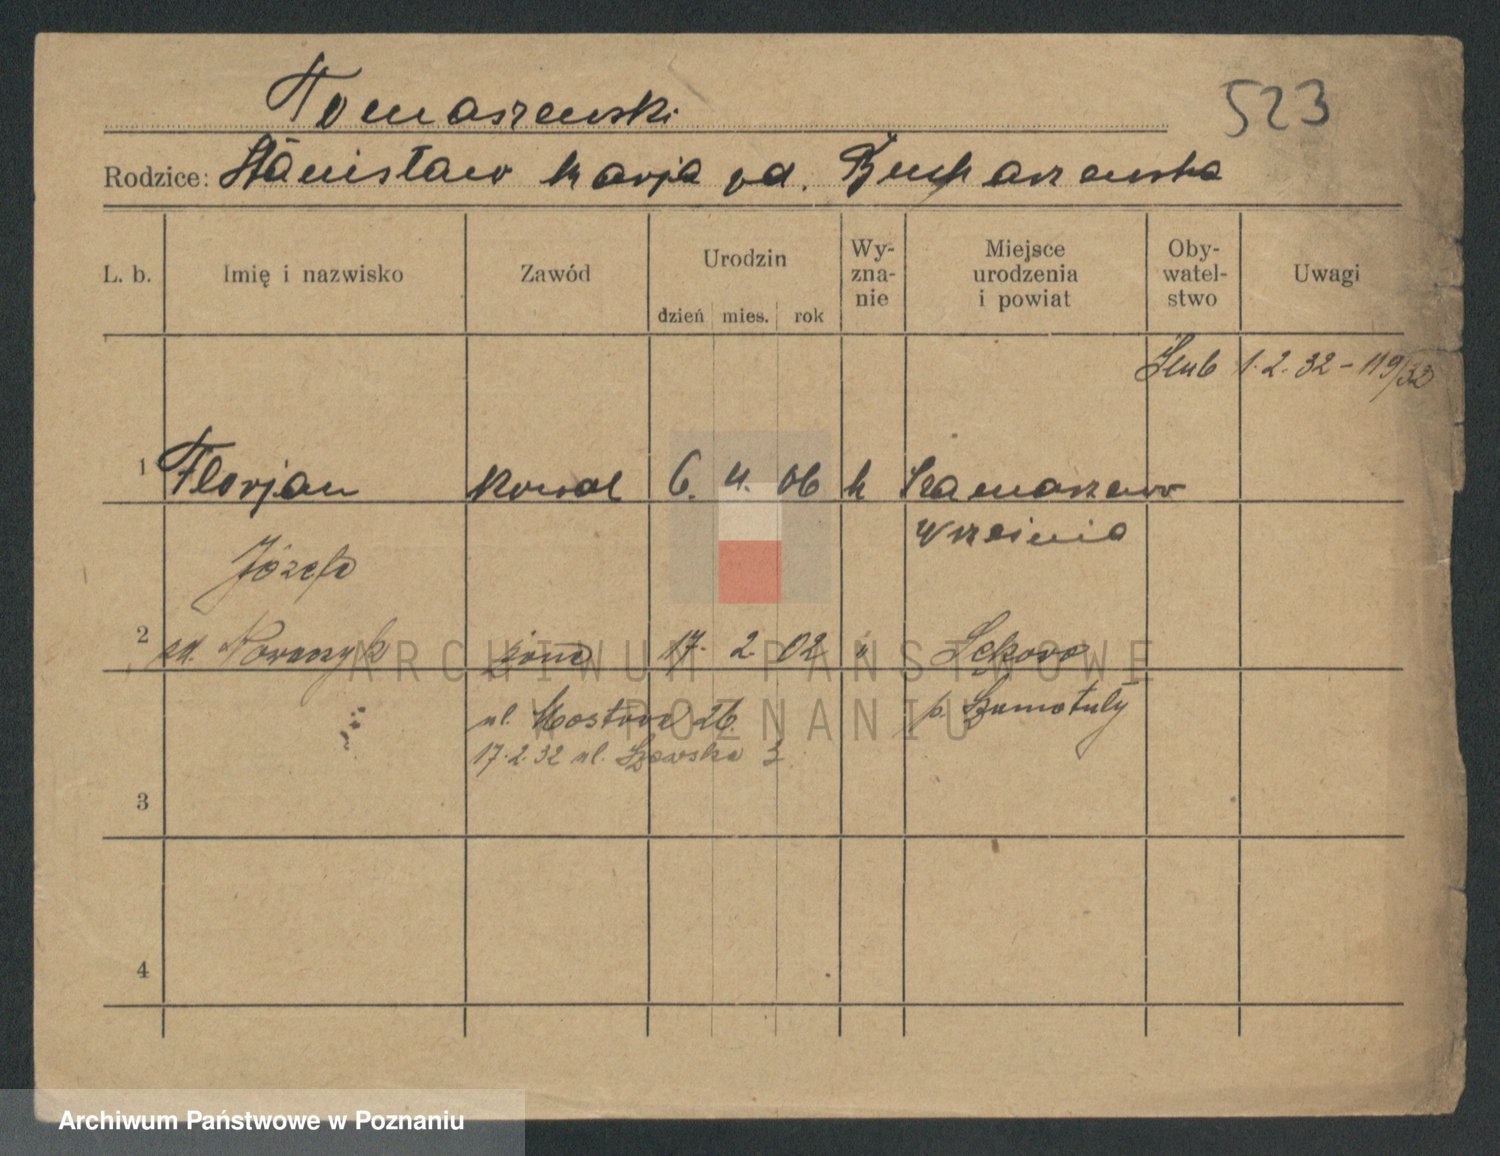 Tomaszewski
523
Rodzice: Stanisław Marja zd.
L. b. Imię i nazwisko Zawód Urodzin dzień mies. rok Wy-zna-nie Miejsce urodzenia i powiat Oby-watel-stwo Uwagi
Ślub 1.2.32 - 119/32
1 Florjan Kowal 6. 4. 06 k
Września
Józefa
2 żona 17. 2. 02 "
p. Szamotuły
ul. Mostowa 26
17.2.32 ul. 3
3
4
ARCHIWUM PAŃSTWOWE
W POZNANIU
Archiwum Państwowe w Poznaniu